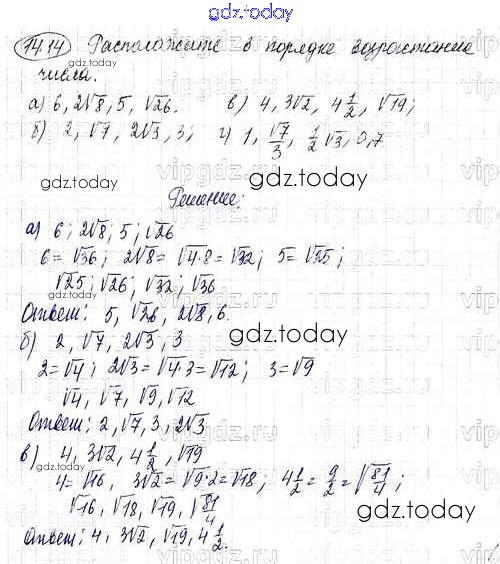 gdz.today
1414 Расположите в порядке возрастание
числа.
а) 6, 2√8, 5, √26. в) 4, 3√2, 4 1/2, √19;
б) 2, √7, 2√3, 3; г) 1, √7/3, 1/2 √3, 0,7
gdz.today gdz.today
Решение:
а) 6; 2√8; 5; √26
6 = √36; 2√8 = √4·8 = √32; 5 = √25;
√25; √26; √32; √36
Ответ: 5, √26, 2√8, 6.
gdz.today
б) 2, √7, 2√3, 3
2 = √4; 2√3 = √4·3 = √12; 3 = √9
√4, √7, √9, √12
Ответ: 2, √7, 3, 2√3
в) 4, 3√2, 4 1/2, √19
gdz.today
4 = √16, 3√2 = √9·2 = √18; 4 1/2 = 9/2 = √81/4;
√16, √18, √19, √81/4
gdz.today
Ответ: 4, 3√2, √19, 4 1/2.